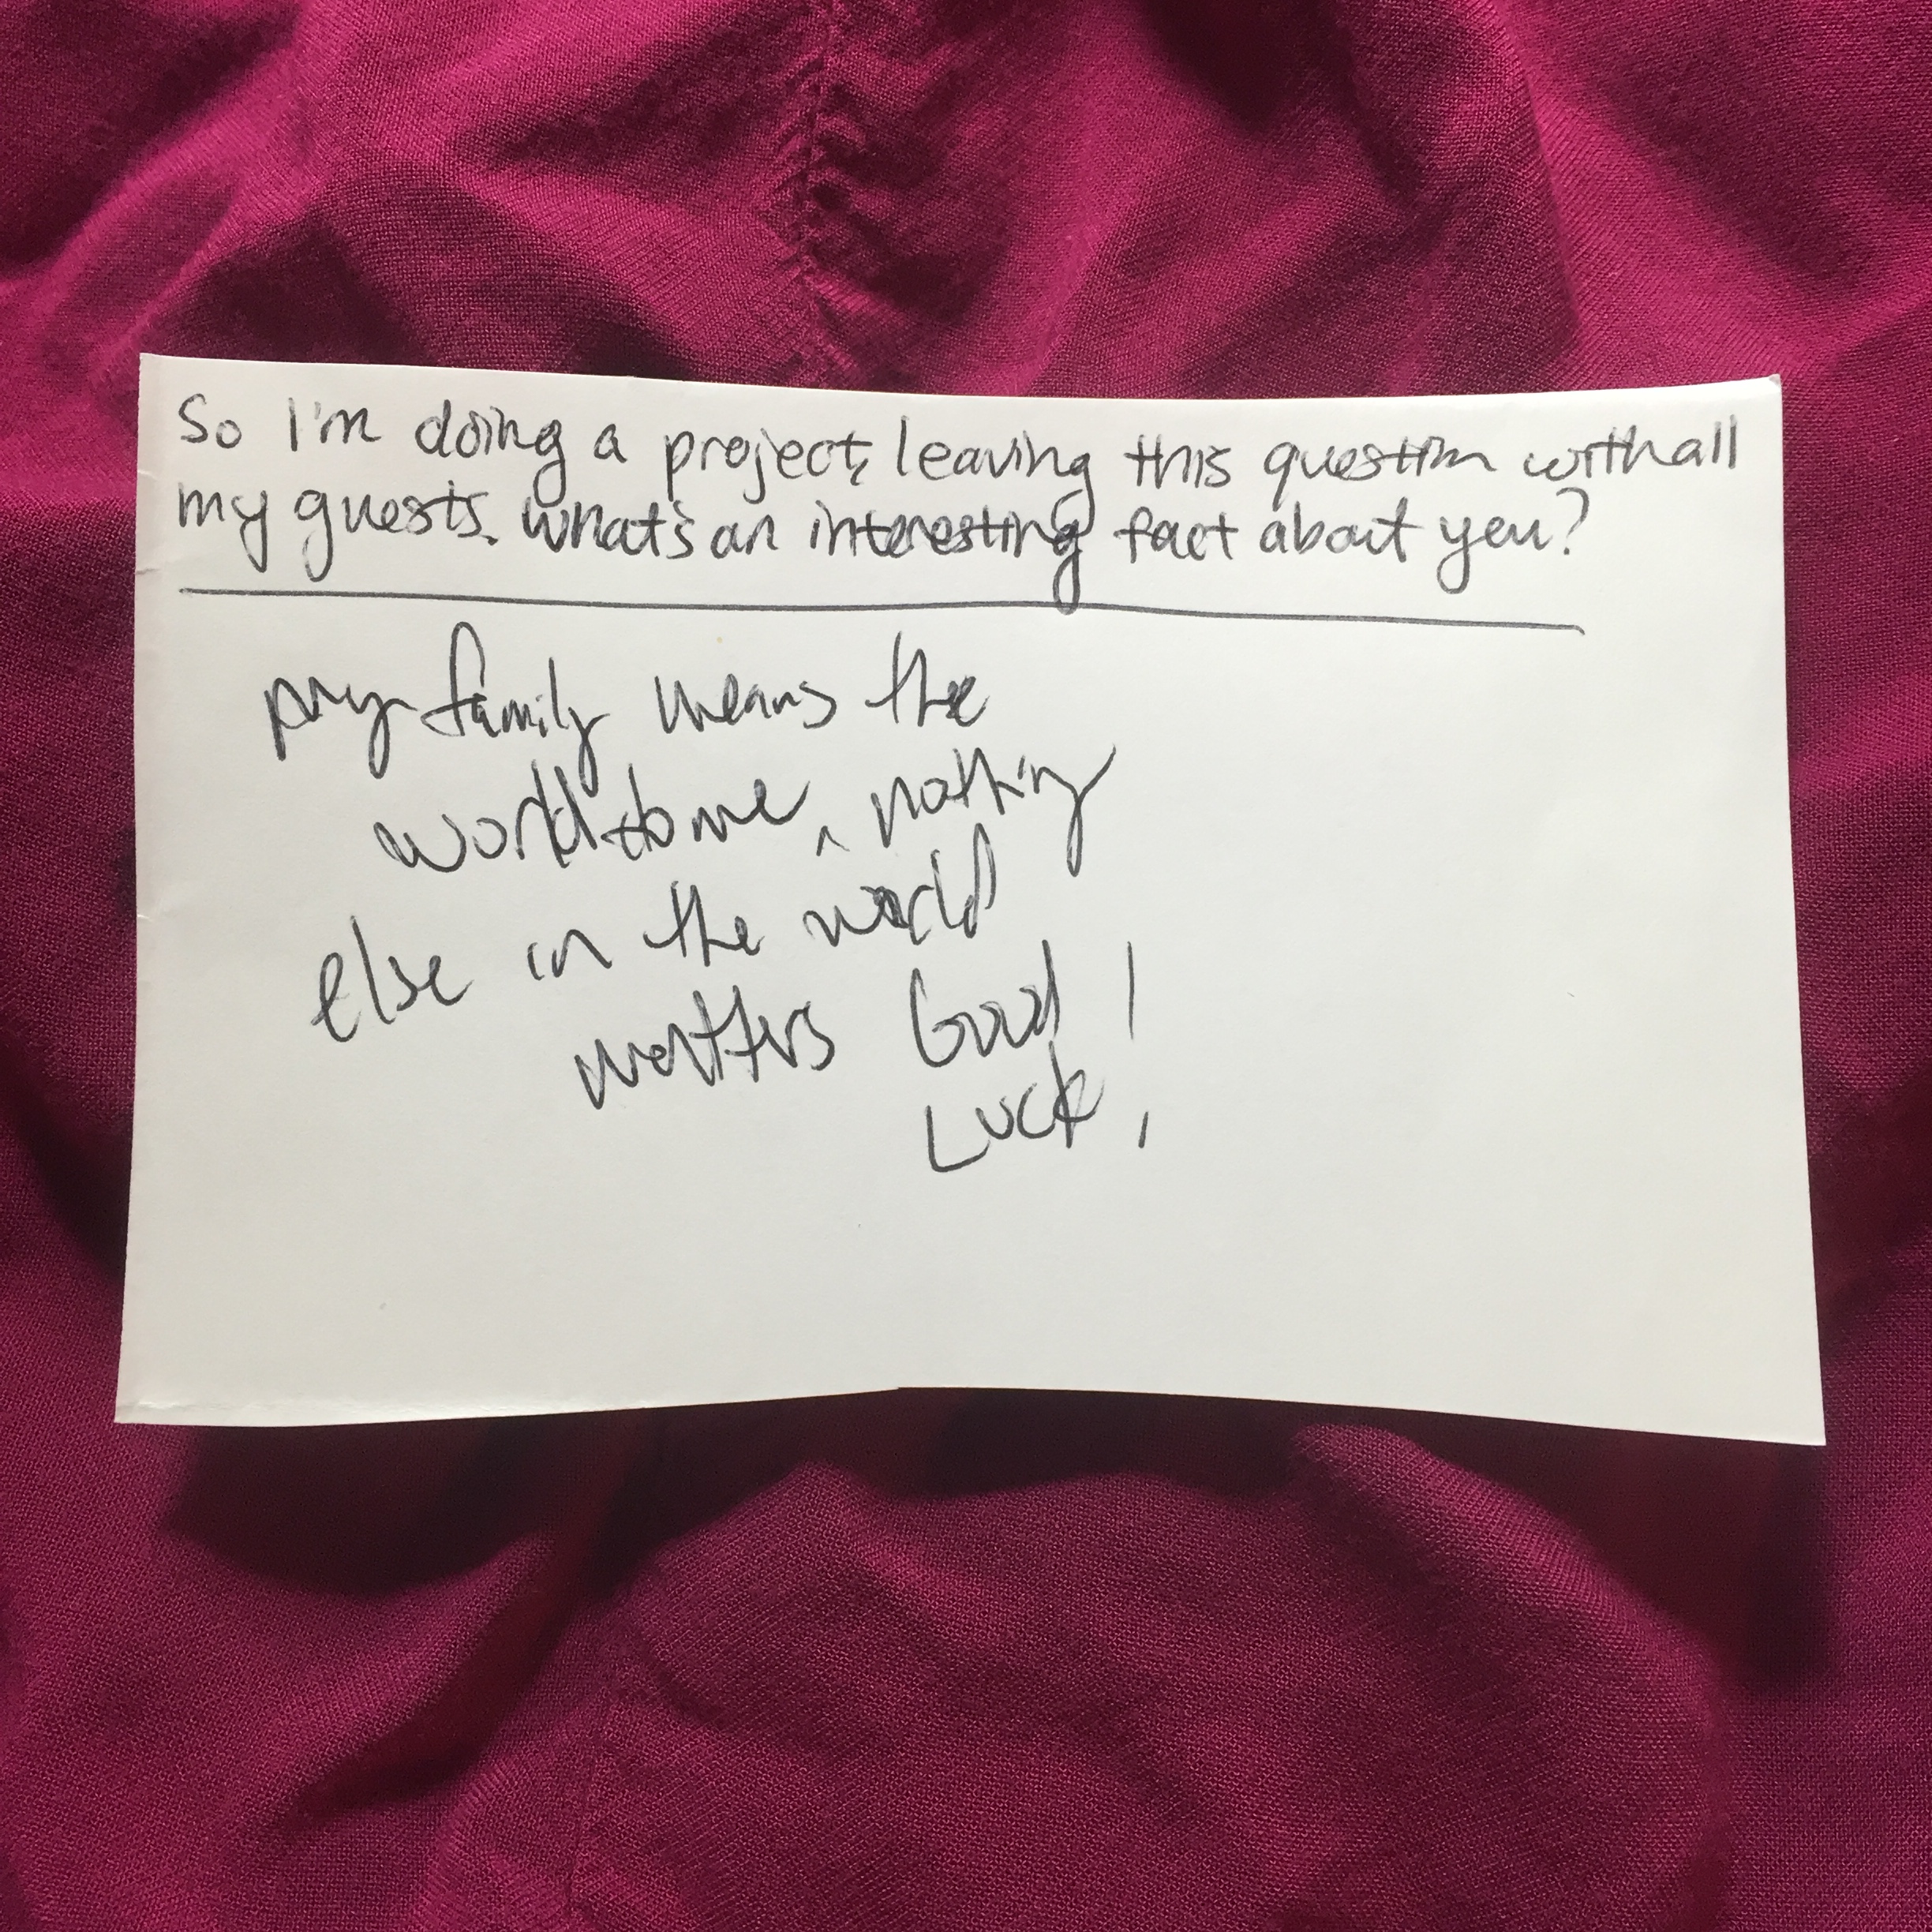 So I'm doing a project, leaving this question with all
my guests. What's an interesting fact about you?
my family means the
world to me, nothing
else in the world
matters Good
Luck!